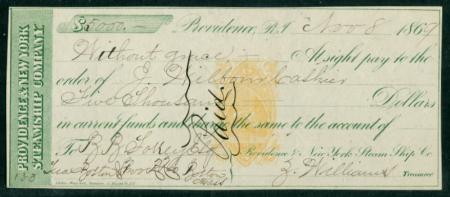 PROVIDENCE & NEW YORK
STEAMSHIP COMPANY
$5000.— Providence, R.I. Nov 8 1869
Without grace — At sight pay to the
order of J. Wilbour Cashier
Five Thousand Dollars
in current funds and charge the same to the account of
To Providence & New York Steam Ship Co.
Boston Z. Williams Treasurer